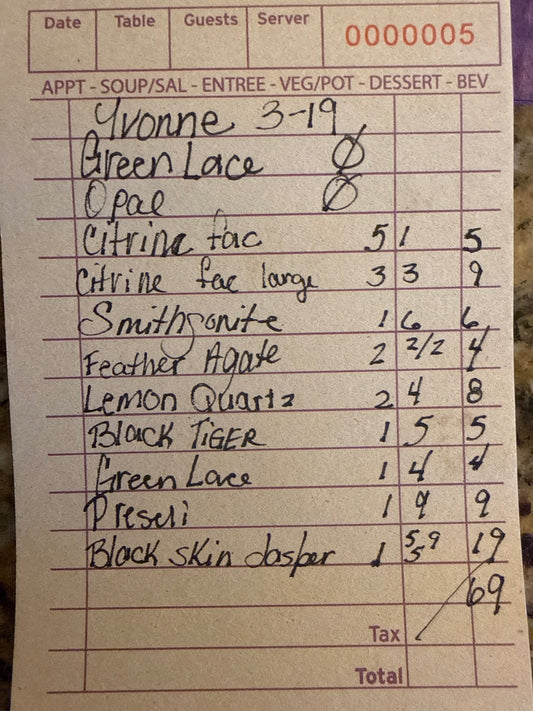 Date Table Guests Server 0000005
APPT - SOUP/SAL - ENTREE - VEG/POT - DESSERT - BEV
Yvonne 3-19
Green Lace Ø
Opal Ø
Citrine fac 5 1 5
Citrine fac large 3 3 9
Smithsonite 1 6 6
Feather Agate 2 2/2 4
Lemon Quartz 2 4 8
Black TIGER 1 5 5
Green Lace 1 4 4
Preseli 1 9 9
Black skin Jasper 1 5 5 9 19
69
Tax
Total